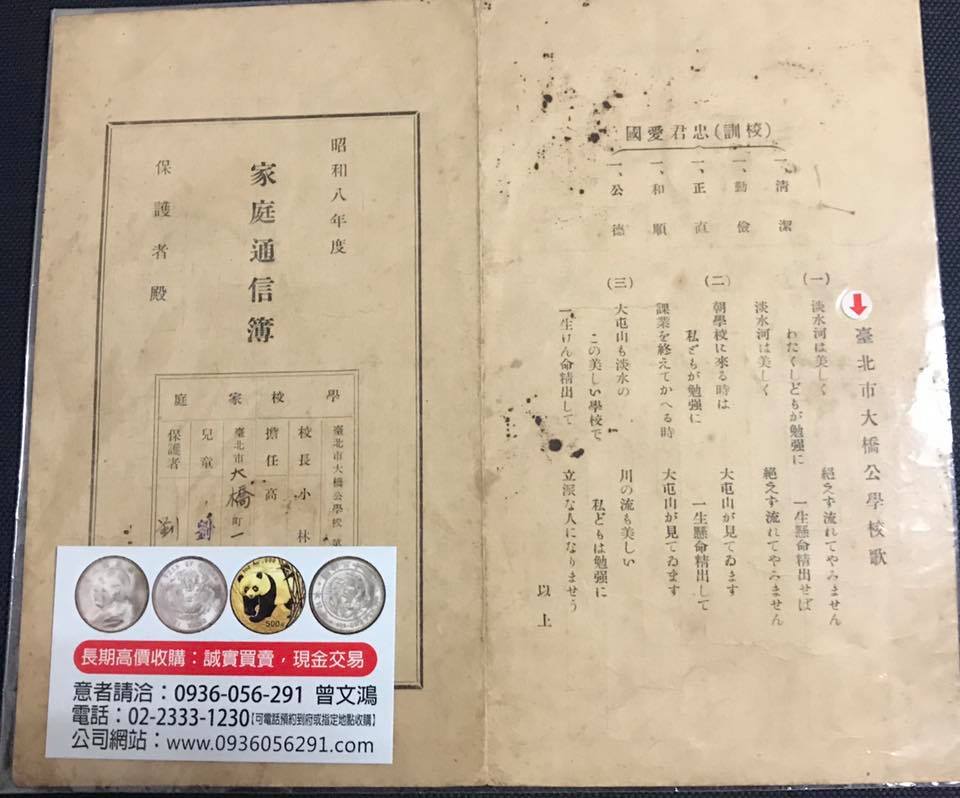 國愛君忠(訓校)
一、清潔
一、勤儉
一、正直
一、和順
一、公德
臺北市大橋公學校歌
(一)
淡水河は美しく 絕えず流れてやみません
わたくしどもが勉强に 一生懸命精出せば
淡水河は美しく 絕えず流れてやみません
(二)
朝學校に來る時は 大屯山が見てゐます
私どもが勉强に 一生懸命精出して
課業を終えてかへる時 大屯山が見てゐます
(三)
大屯山も淡水の 川の流も美しい
この美しい學校で 私どもは勉强に
一生けん命精出して 立派な人になりませう
以上
昭和八年度
家庭通信簿
保護者殿
學校
家庭
臺北市大橋公學校第
校長小林
擔任高
臺北市大橋町一
兒童 劉
保護者 劉
500
長期高價收購：誠實買賣，現金交易
意者請洽：0936-056-291 曾文鴻
電話：02-2333-1230【可電話預約到府或指定地點收購】
公司網站：www.0936056291.com